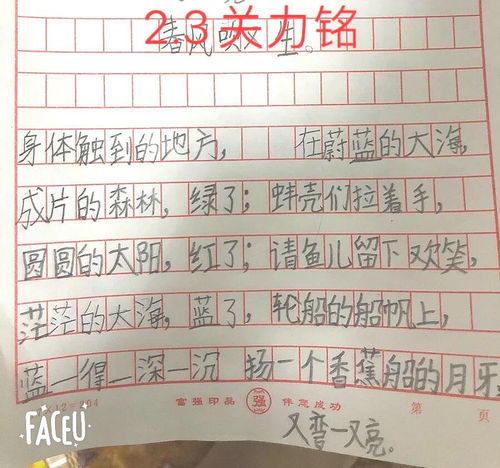 23关力铭
春风吹又生。
身体触到的地方， 在蔚蓝的大海，
成片的森林，绿了；蚌壳们拉着手，
圆圆的太阳，红了；请鱼儿留下欢笑，
茫茫的大海，蓝了，轮船的船帆上，
蓝一得一深一沉 扬一个香蕉船的月牙，
富强印品 强 伴您成功 第 页
又弯一又亮。
FACEU